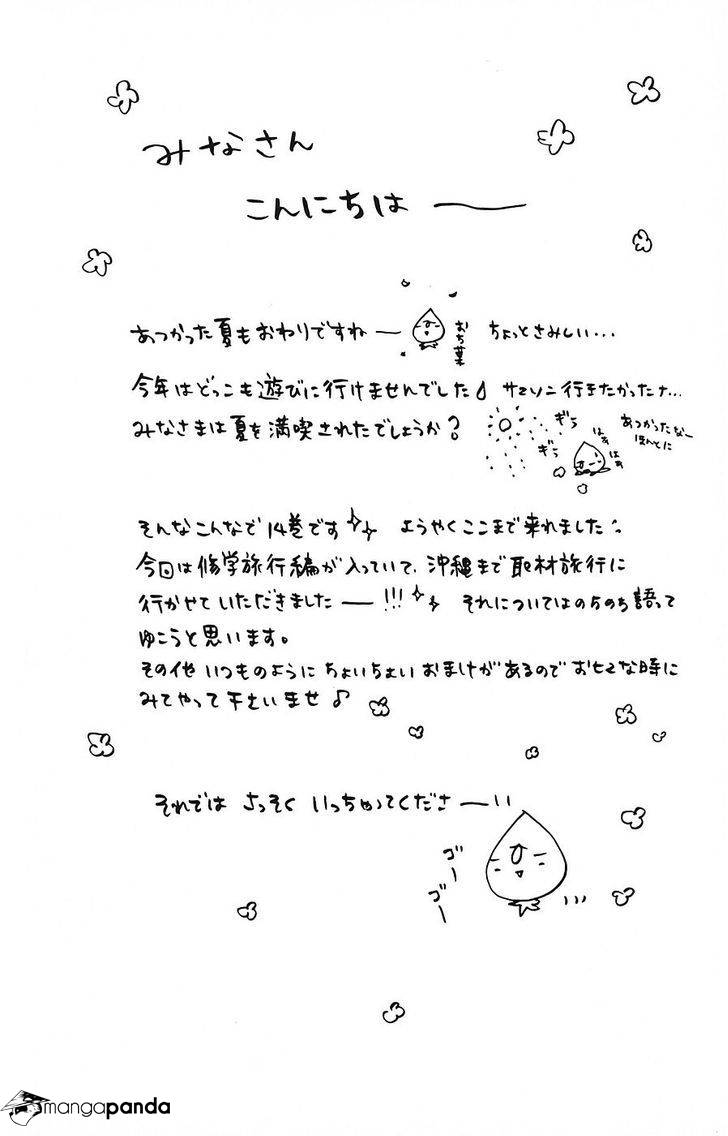 みなさん
こんにちは ——
あつかった夏もおわりですね— ちょっとさみしい...
おち葉
今年はどっこも遊びに行けませんでした サマソニ行きたかったナ...
みなさまは夏を満喫されたでしょうか?
ぎら
ぎら
はぁ
はぁ
あつかったなー
ほんとに
そんなこんなで14巻です ようやくここまで来れました
今回は修学旅行編が入っていて、沖縄まで取材旅行に
行かせていただきました——!!! それについてはのちのち語って
ゆこうと思います。
その他いつものようにちょいちょいおまけがあるのでおヒマな時に
みてやって下さいませ♪
それでは さっそく いっちゃってくださ—い
ゴー
ゴー
mangapanda